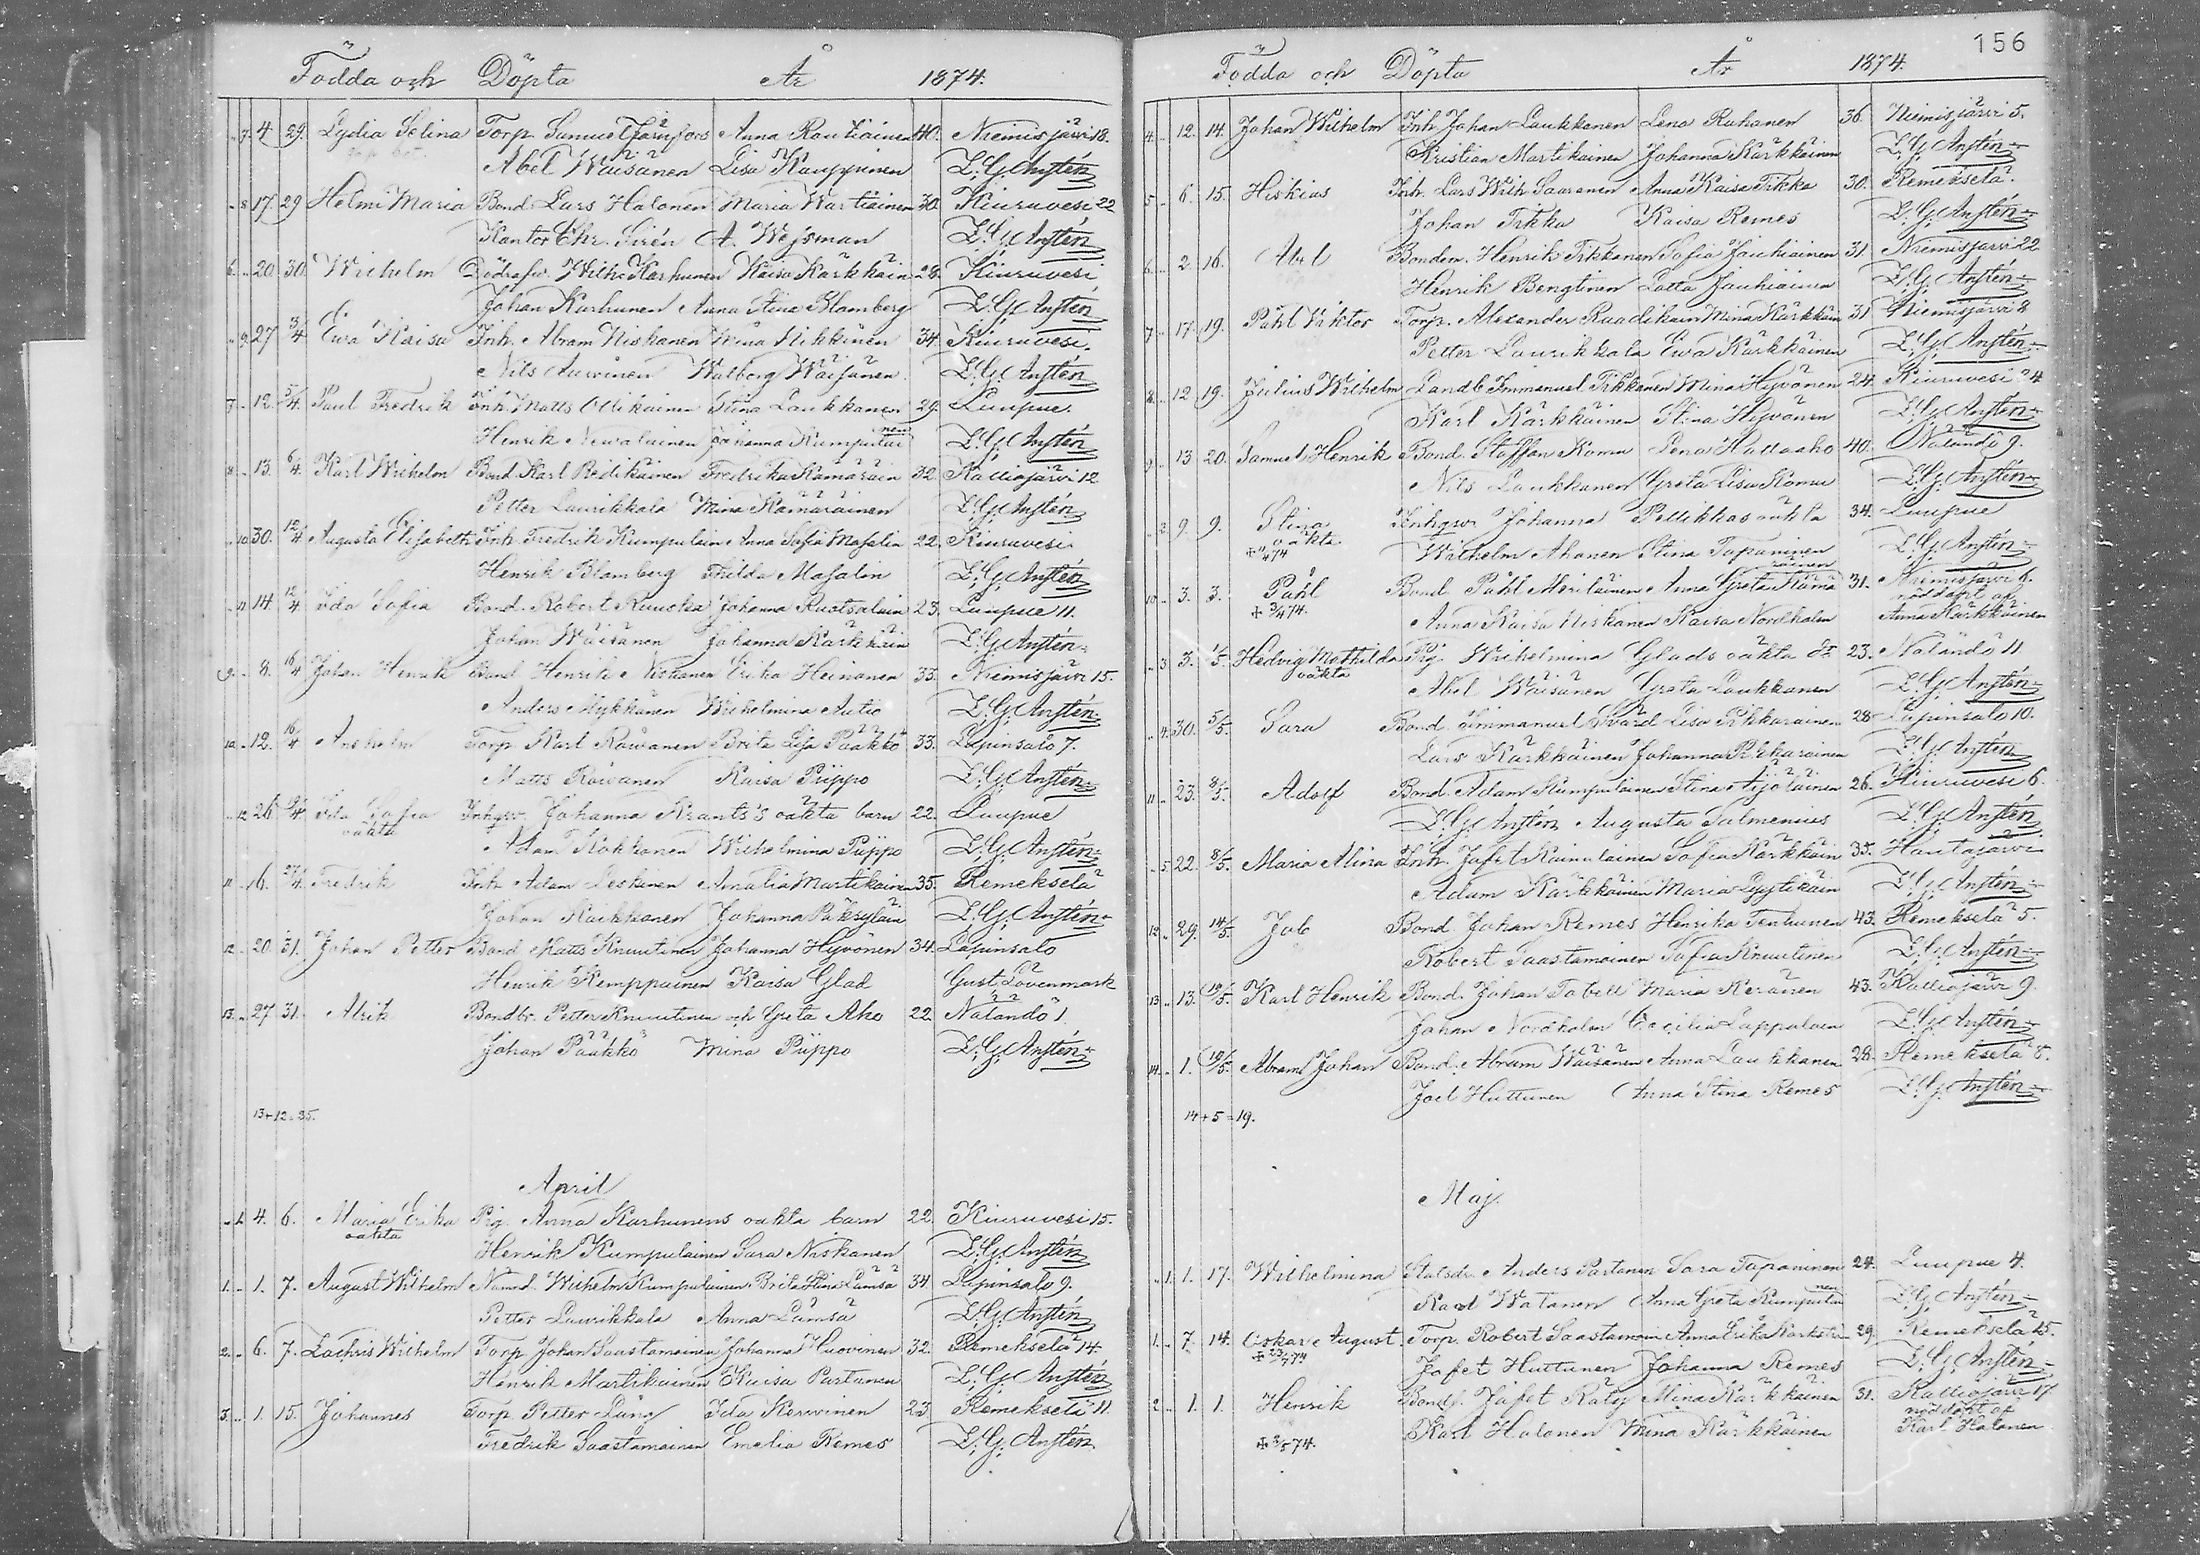 Födda och Döpta År 1874.
7 4 29. Lydia Selina Torp. Samuel Anna Rautiainen 40. Niemisjärvi 18.
Abel Wäisänen Lisa Kauppinen L. G. Anstén
8 17 29 Helmi Maria Bond. Lars Halonen Maria Wartiainen 30. Kiuruvesi 22
Kantor Chr. Sirén A. Wejsman L. G. Anstén
6 20 30 Wilhelm Wilh. Karhunen Kaisa Kärkkäin 28. Kiuruvesi
Johan Karhunen Anna Stina Blomberg L. G. Anstén
9 27 3/4 Ewa Kaisa Inh. Abram Niskanen Mina Nikkinen 34. Kiuruvesi.
Nils Auwinen Walborg Wäisänen L. G. Anstén
7 12 5/4 Paul Fredrik Inh. Matts Ollikainen Stina Laukkanen 29. Luupue.
Henrik Newalainen Johanna Kumpulainen L. G. Anstén
8 13. 6/4 Karl Wilhelm Bond. Karl Fredrika Kämäräin 32. Kalliojärvi 12
Petter Laurikkala Mina Kämäräinen L. G. Anstén
10 30. 12/4 Augusta Elisabeth Inh. Fredrik Kumpulain Anna Sofia Masalin 22. Kiuruvesi
Henrik Blomberg Thilda Masalin L. G. Anstén
11 14 12/4 Ida Sofia Bond. Robert Ruuska Johanna Ruotsalain 23. Luupue 11.
Johan Wäisänen Johanna Kärkkäin L. G. Anstén
9 8. 16/4 Johan Henrik Bond Henrik Niskanen Erika Heinonen 33. Niemisjärvi 15.
Anders Mykkänen Wilhelmina Autio L. G. Anstén
10 12. 16/4 Anshelm Torp. Karl Räwänen Brita Lisa Pääkkö 33. Lapinsalo 7.
Matts Räwänen Kaisa Piippo L. G. Anstén
12 26 Ida Sofia Inhqw. Johanna Krants's oäkta barn 22. Luupue
oäkta
Adam Kokkonen Wilhelmina Piippo L. G. Anstén
11 16. Fredrik Inh. Adam Leskinen Amalia Martikainen 35. Remekselä
Johan Kaikkonen Johanna L. G. Anstén
12 20 31. Johan Petter Bond Matts Knuutinen Johanna Hyvönen 34. Lapinsalo
Henrik Kemppainen Kaisa Glad Gust. Löwenmark
13. 27 31. Alrik Bondbr. Petter Knuutinen och Greta Aho 22 Näläntö 1.
Johan Pääkkö Mina Piippo L. G. Anstén
13+12=25.
April
1. 4. 6. Maria Erika Pig. Anna Karhunens oäkta barn 22. Kiuruvesi 15.
oäkta
Henrik Kumpulainen Sara Niskanen L. G. Anstén
1. 1. 7. August Wilhelm Nämnd. Wilhelm Kumpulainen Brita Stina Lämsä 34. Lapinsalo 9.
Petter Laurikkala Anna Lämsä L. G. Anstén
2. 6. 7. Zachris Wilhelm Torp. Johan Saastamoinen Johanna Huovinen 32. Remekselä 14.
Henrik Martikainen Kaisa Partanen L. G. Anstén
3. 1. 15. Johannes Torp. Petter Lång Ida Kerwinen 23. Remekselä 11.
Fredrik Saastamoinen Emelia Remes L. G. Anstén
156
Födda och Döpta År 1874.
4. 12. 14. Johan Wilhelm Inh. Johan Laukkanen Lena Ruhanen 36. Niemisjärvi 5.
Kristian Martikainen Johanna Kärkkäinen L. G. Anstén
5. 6. 15. Hiskias Inh. Lars Wilh. Saaranen Anna Kaisa Tikka 30. Remekselä.
Johan Tikka Kaisa Remes L. G. Anstén
6. 2. 16. Abel Bonden Henrik Tikkanen Sofia Jauhiainen 31. Niemisjärvi 22
Henrik Bengtinen Lotta Jauhiainen L. G. Anstén
7. 17. 19. Påhl Viktor Torp. Alexander Raadikain Mina Kärkkäin 31 Niemisjärvi 8
Petter Laurikkala Ewa Kärkkäinen L. G. Anstén
8. 12 19. Julius Wilhelm Landb. Immanuel Tikkanen Mina Hyvönen 24. Kiuruvesi 24.
Karl Kärkkäinen Stina Hyvönen L. G. Anstén
9. 13 20. Samuel Henrik Bond. Staffan Komu Lena Hallaaho 40. Näläntö 9.
Nils Laukkanen Greta Lisa Komu L. G. Anstén
2 9. 9. Stina Inhqw. Johanna Pellikkas oäkta 34. Luupue
oäkta
Wilhelm Ahonen Stina Tapaninen L. G. Anstén
10 3. 3. Påhl Bond Påhl Meriläinen Anna Greta Kämäräinen 31. Niemisjärvi 6.
nöddöpt af
✠ 3/4 74. Anna Kaisa Niskanen Kaisa Nordholm Anna Kärkkäinen
3. 3. 1/5. Hedvig Mathilda Pig. Wilhelmina Glads oäkta 23. Näläntö 11
oäkta
Abel Wäisänen Greta Laukkanen L. G. Anstén
4. 30. 5/5. Sara Bond. Immanuel Swärd Lisa Pikkarainen 28. Lapinsalo 10.
Lars Kärkkäinen Johanna Pikkarainen L. G. Anstén
11 23. 8/5. Adolf Bond. Adam Kumpulainen Stina Äijäläinen 26. Kiuruvesi 6.
L. G. Anstén Augusta Salmenius L. G. Anstén
5 22. 8/5. Maria Alina Inh. Jafet Kainulainen Sofia Kärkkäin 35. Hautajärvi
Adam Kärkkäinen Maria Lyytikäin L. G. Anstén
12 29. 14/5. Job Bond Johan Remes Henrika Tenhunen 43. Remekselä 5.
Robert Saastamoinen Sofia Knuutinen L. G. Anstén
13 13. 19/5. Karl Henrik Bond. Johan Tabell Maria Keränen 43. Kalliojärvi 9.
Johan Nordholm Cecilia Lappalain L. G. Anstén
14 1. 19/5. Abram Johan Bond. Abram Wäisänen Anna Laukkanen 28. Remekselä 8.
Joel Huttunen Anna Stina Remes L. G. Anstén
14+5=19.
Maj.
1. 1. 17. Wilhelmina Statsdr. Anders Partanen Sara Tapaninen 24. Luupue 4.
Karl Watanen Anna Greta Kumpulainen L. G. Anstén
1. 7. 14. Oskar August Torp. Robert Saastamoin Anna Erika 29. Remekselä 15.
Jafet Huttunen Johanna Remes L. G. Anstén
2. 1. 1. Henrik Bonds. Jafet Räty Mina Kärkkäinen 31. Kalliojärvi 17.
nöddöpt af
✠ 3/5 74. Karl Halonen Mina Kärkkäinen Karl Halonen